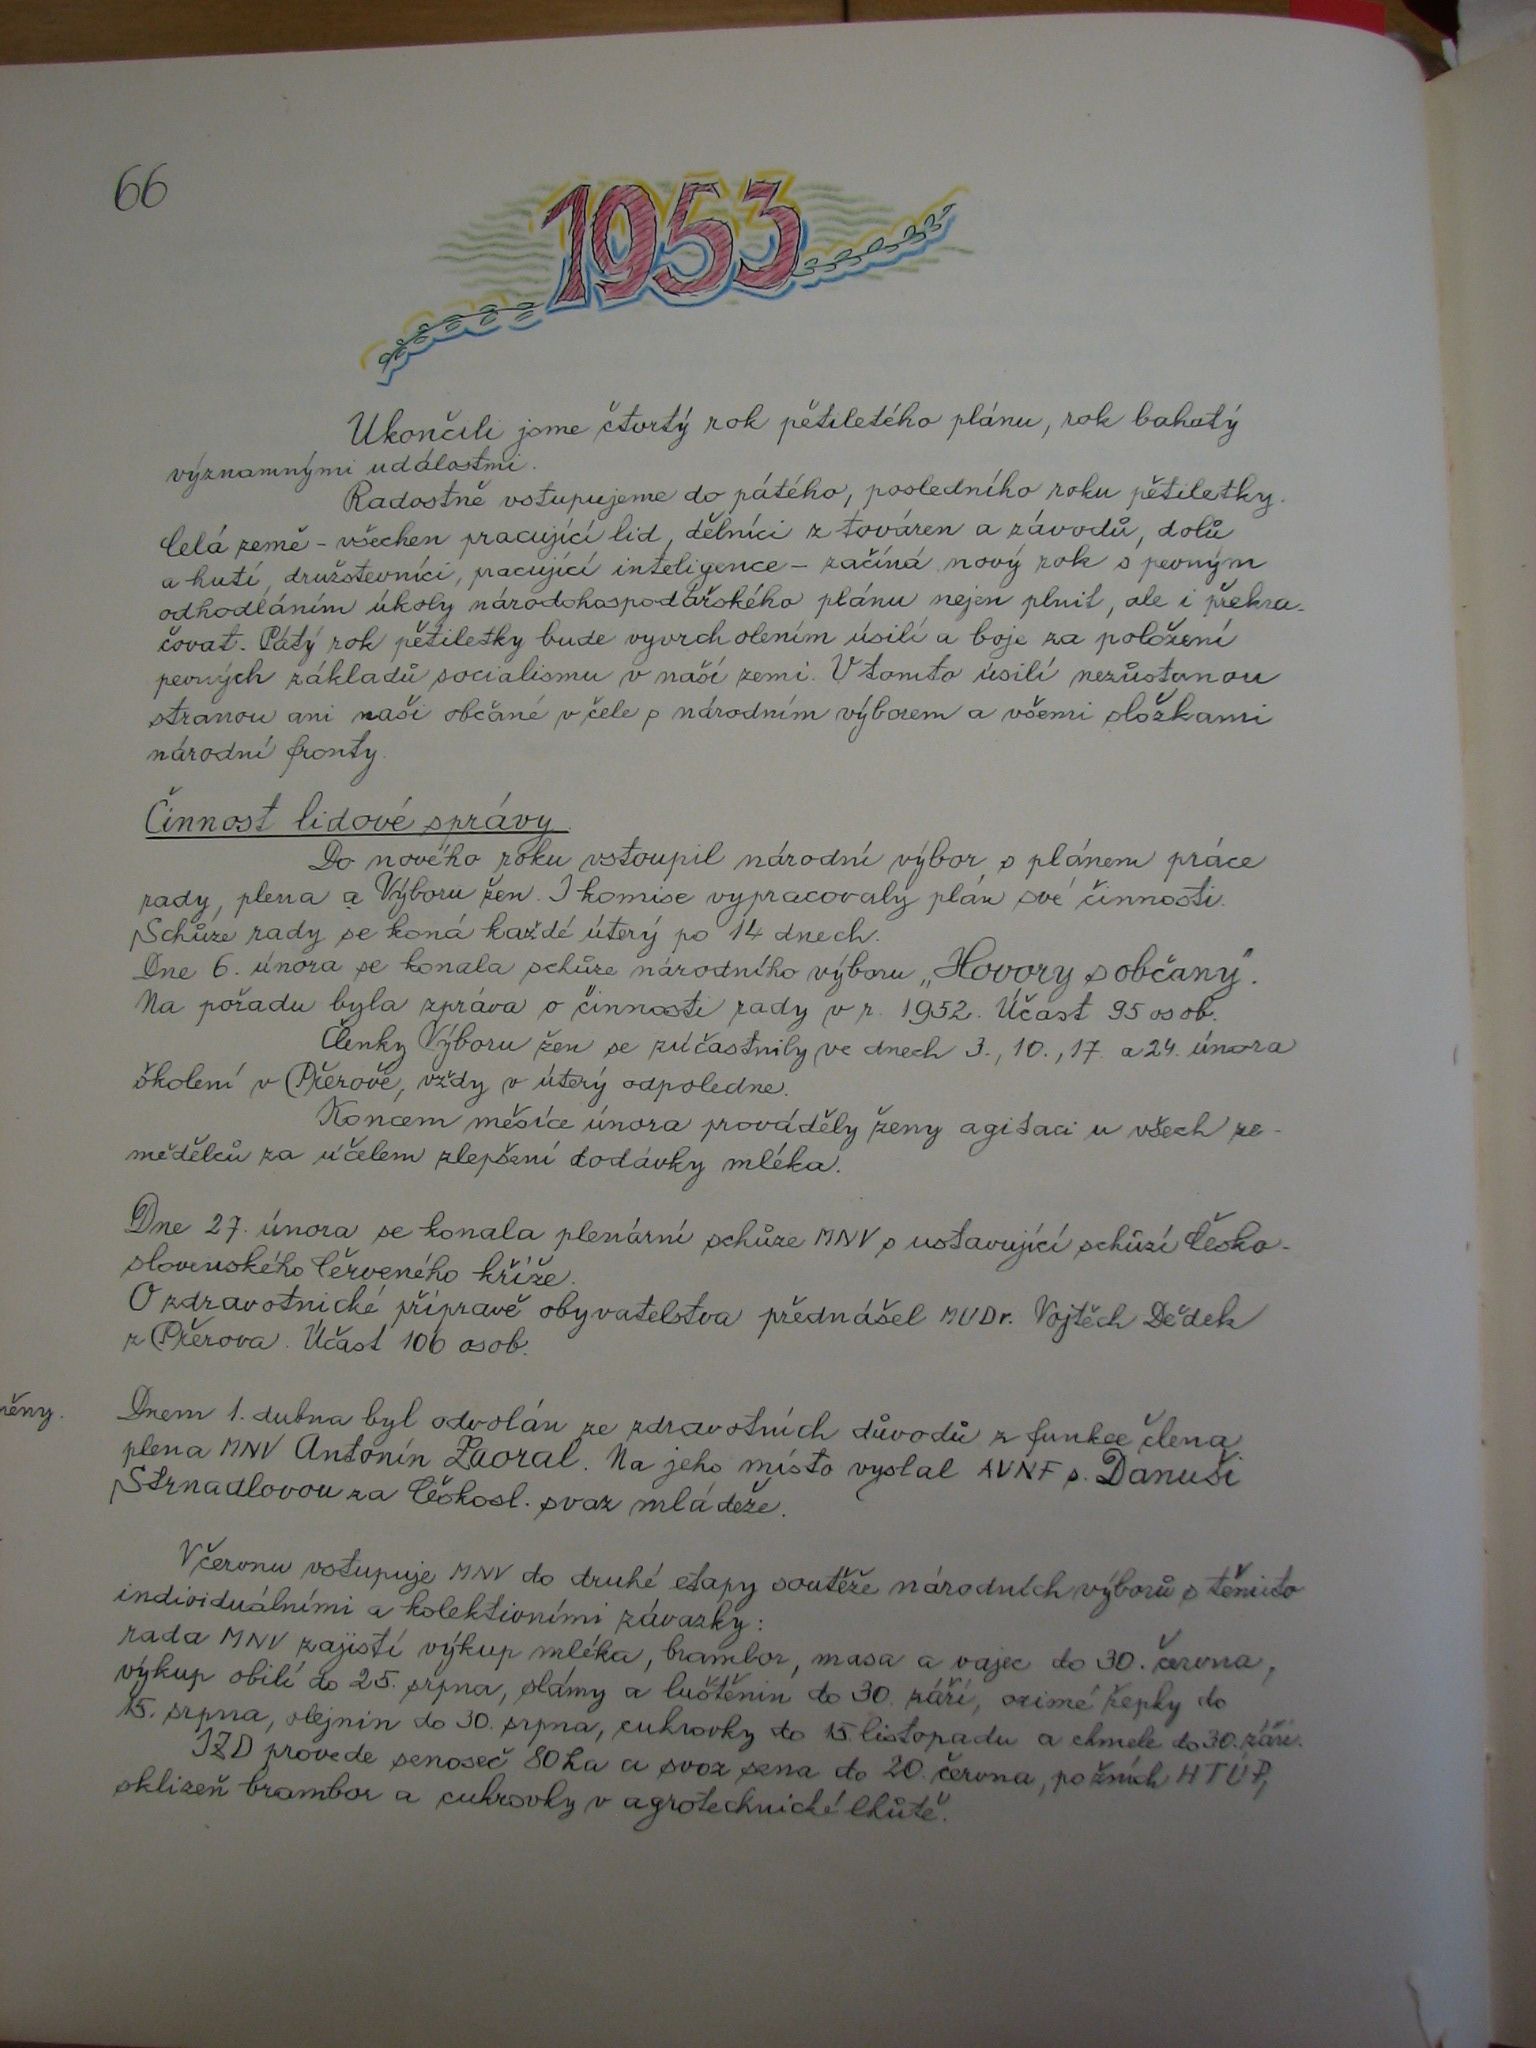 66
1953
Ukončili jsme čtvrtý rok pětiletého plánu, rok bohatý
významnými událostmi.
Radostně vstupujeme do pátého, posledního roku pětiletky.
Celá země – všechen pracující lid, dělníci z továren a závodů, dolů
a hutí, družstevníci, pracující inteligence – začíná nový rok s pevným
odhodláním úkoly národohospodářského plánu nejen plnit, ale i překra-
čovat. Pátý rok pětiletky bude vyvrcholením úsilí a boje za položení
pevných základů socialismu v naší zemi. V tomto úsilí nezůstanou
stranou ani naši občané v čele s národním výborem a všemi složkami
národní fronty.
Činnost lidové správy
Do nového roku vstoupil národní výbor s plánem práce
rady, plena a Výboru žen. I komise vypracovaly plán své činnosti.
Schůze rady se koná každé úterý po 14 dnech.
Dne 6. února se konala schůze národního výboru „Hovory s občany".
Na pořadu byla zpráva o činnosti rady v r. 1952. Účast 95 osob.
Členky Výboru žen se zúčastnily ve dnech 3., 10., 17. a 24. února
školení v Přerově, vždy v úterý odpoledne.
Koncem měsíce února prováděly ženy agitaci u všech ze-
mědělců za účelem zlepšení dodávky mléka.
Dne 27. února se konala plenární schůze MNV s ustavující schůzí Česko-
slovenského Červeného kříže.
O zdravotnické přípravě obyvatelstva přednášel MUDr. Vojtěch Dědek
z Přerova. Účast 106 osob.
něny.
Dnem 1. dubna byl odvolán ze zdravotních důvodů z funkce člena
plena MNV Antonín Zaoral. Na jeho místo vyslal AVNF s. Danuši
Strnadlovou za Českosl. svaz mládeže.
V červnu vstupuje MNV do druhé etapy soutěže národních výborů s těmito
individuálními a kolektivními závazky:
rada MNV zajistí výkup mléka, brambor, masa a vajec do 30. června,
výkup obilí do 25. srpna, slámy a luštěnin do 30. září, ozimé řepky do
15. srpna, olejnin do 30. srpna, cukrovky do 15. listopadu a chmele do 30. září.
JZD provede senoseč 80 ha a svoz sena do 20. června, po žních HTÚP,
sklizeň brambor a cukrovky v agrotechnické lhůtě.